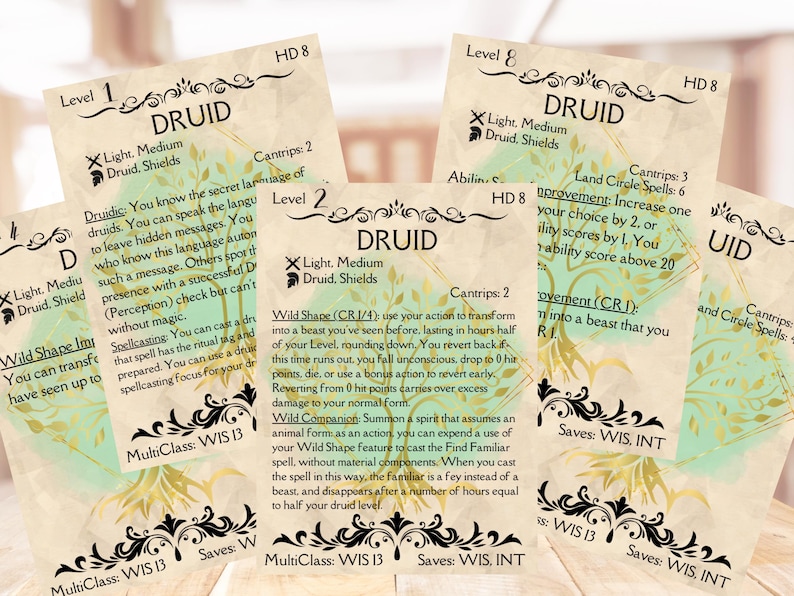 Level 1
HD 8
DRUID
Light, Medium
Druid, Shields
Cantrips: 2
Druidic: You know the secret language of
druids. You can speak the
to leave hidden messages. You
who know this language
such a message. Others spot
presence with a successful
(Perception) check but can't
without magic.
Spellcasting: You can cast a
that spell has the ritual tag and
prepared. You can use a
spellcasting focus for your
MultiClass: WIS 13
Level 8
HD 8
DRUID
Light, Medium
Druid, Shields
Cantrips: 3
Land Circle Spells: 6
Ability
Improvement: Increase one
your choice by 2, or
ability scores by 1. You
ability score above 20
(CR 1):
into a beast that you
Saves: WIS, INT
4
Light, Medium
Druid,
Wild Shape
You can
have seen up to
MultiClass: WIS 13
Saves:
Level 2
HD 8
DRUID
Light, Medium
Druid, Shields
Cantrips: 2
Wild Shape (CR 1/4): use your action to transform
into a beast you've seen before, lasting in hours half
of your Level, rounding down. You revert back if
this time runs out, you fall unconscious, drop to 0 hit
points, die, or use a bonus action to revert early.
Reverting from 0 hit points carries over excess
damage to your normal form.
Wild Companion: Summon a spirit that assumes an
animal form: as an action, you can expend a use of
your Wild Shape feature to cast the Find Familiar
spell, without material components. When you cast
the spell in this way, the familiar is a fey instead of a
beast, and disappears after a number of hours equal
to half your druid level.
MultiClass: WIS 13
Saves: WIS, INT
HD 8
Circle Spells:
Saves: WIS, INT